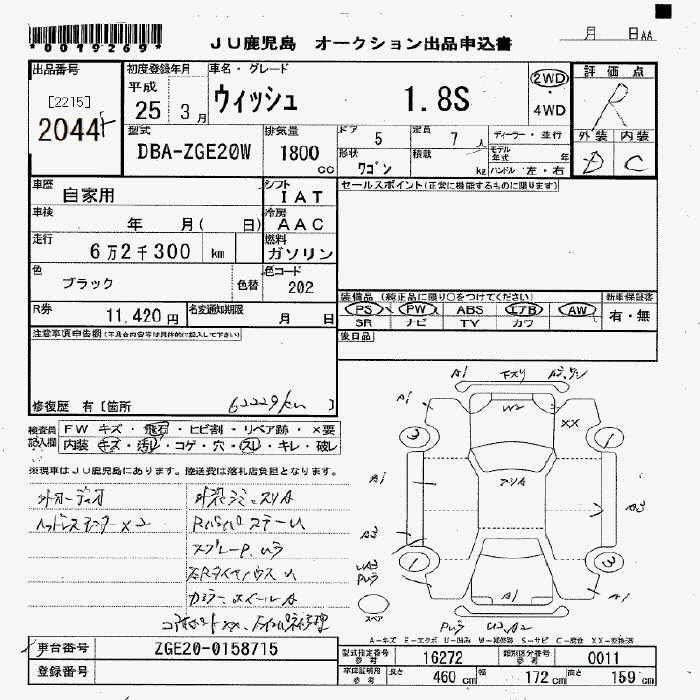 *0019269*
JU鹿児島 オークション出品申込書
月 日AA
出品番号
[2215]
2044
初度登録年月
平成
25 3月
車名・グレード
ウィッシュ 1.8S
2WD
4WD
評価点
R
外装 内装
D C
型式
DBA-ZGE20W
排気量
1800 cc
ドア 5
定員 7人
形状 ワゴン
積載 kg
ディーラー・並行
モデル年式 年
ハンドル 左・右
車歴
自家用
シフト
IAT
セールスポイント(正常に機能するものに限ります)
車検
年 月( 日)
冷房
AAC
走行
6万2千300 km
燃料
ガソリン
色
ブラック
色替
色コード
202
装備品 (純正品に限り○をつけてください)
新車保証書
PS PW ABS エアB AW
SR ナビ TV カワ
有・無
R券
11,420円
名変通知期限
月 日
後日品
注意事項申告欄(不具合内容等は具体的に記入して下さい)
修復歴 有〔箇所 〕
62229km
検査員記入欄
FW キズ・飛石・ヒビ割・リペア跡・×要
内装 キズ・汚レ・コゲ・穴・スレ・キレ・破レ
※現車はJU鹿児島にあります。陸送費は落札店負担となります。
外オーディオ
ヘッドレストモニター×2
車台番号
ZGE20-0158715
登録番号
A1 下スリ
A1
W2
XX
3
1
A1
アリA
A3
A3
1
3
A1
A1
スペア
A-キズ E-エクボ U-凹み W-補修跡 S-サビ C-腐食 XX-交換済
型式指定番号 参考
16272
類別区分番号 参考
0011
車庫証明用 参考
長さ 460cm
幅 172cm
高さ 159cm